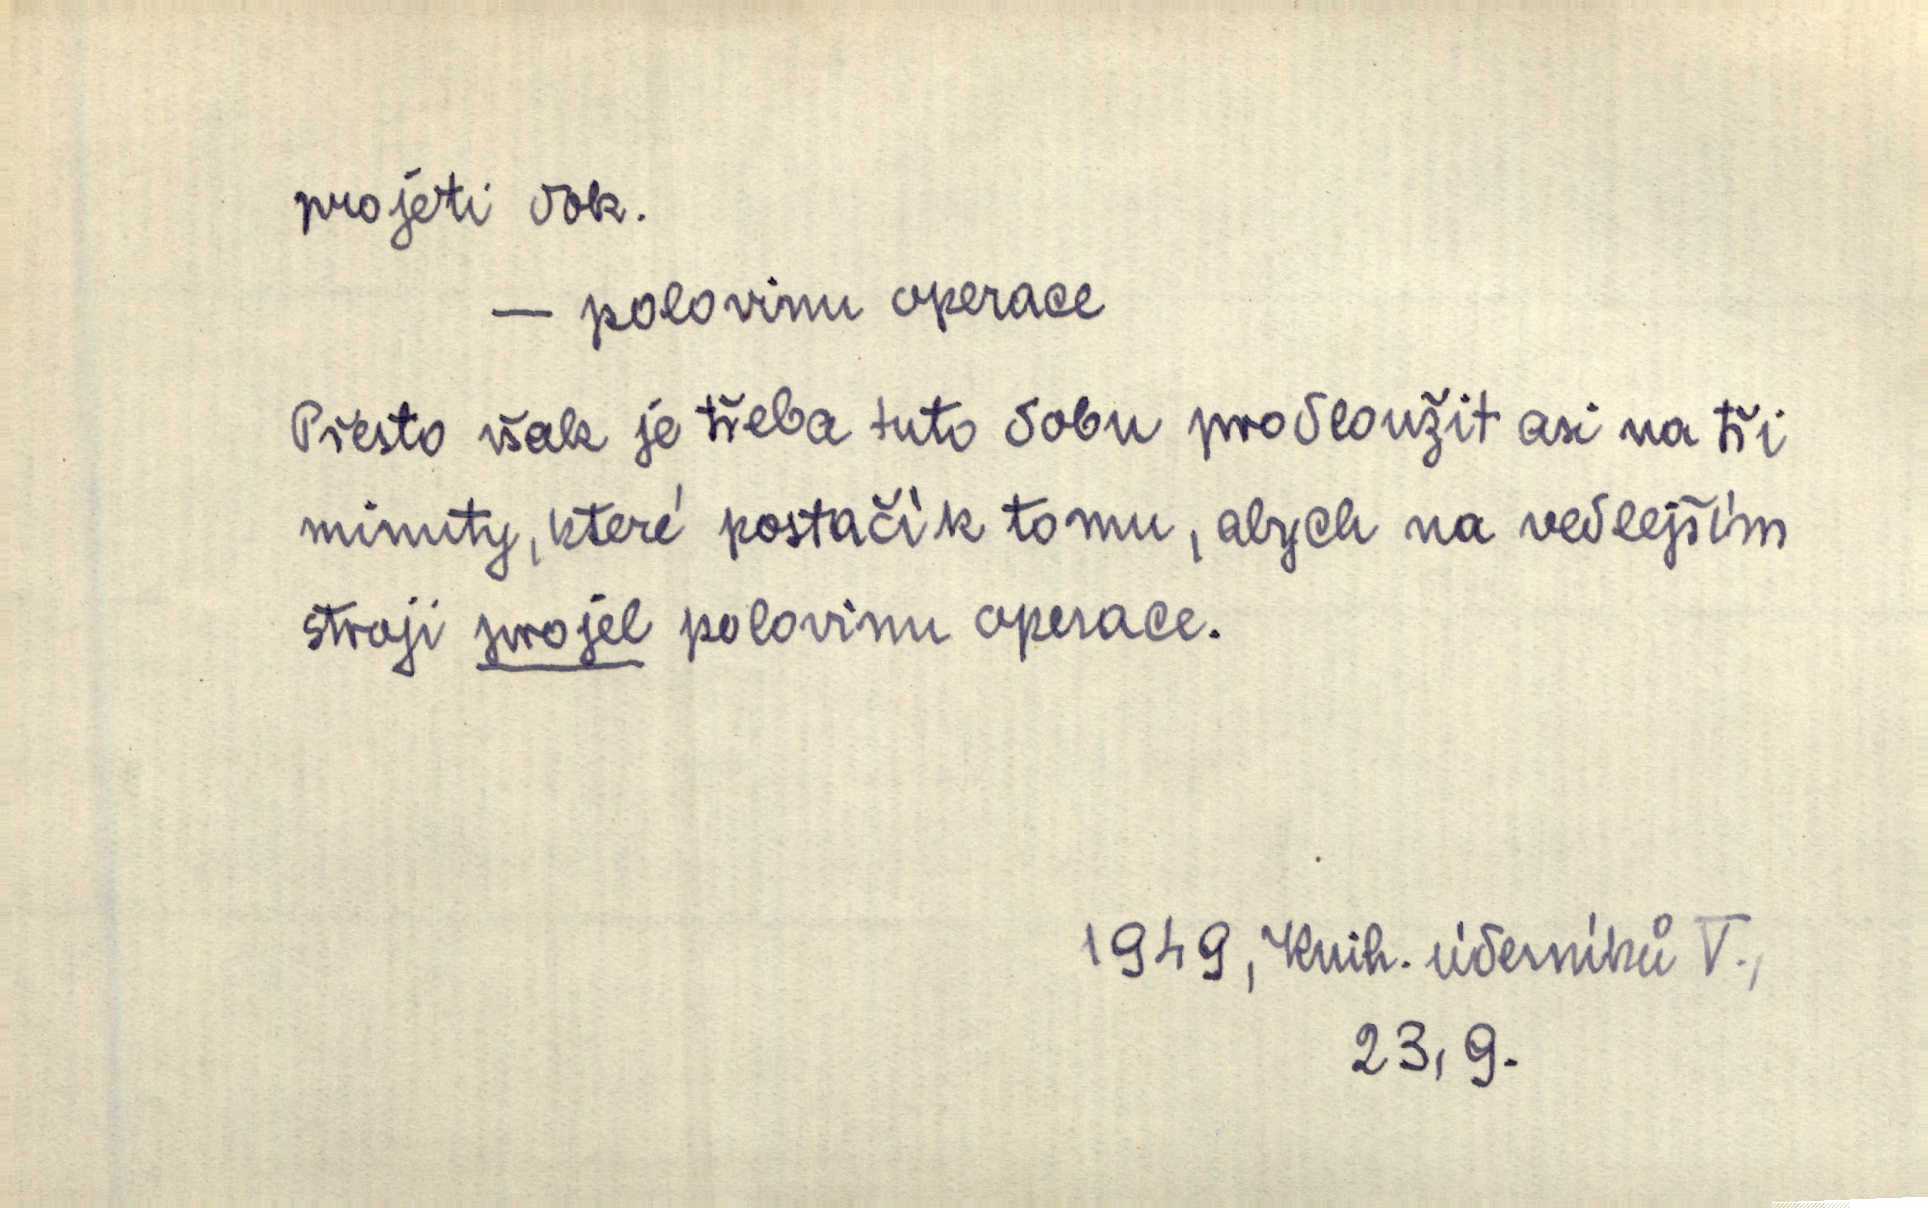 projeti dok.
— polovinu operace
Přesto však je třeba tuto dobu prodloužit asi na tři
minuty, které postačí k tomu, abych na vedlejším
stroji projel polovinu operace.
1949, Knih. úderníků V.,
23, 9.